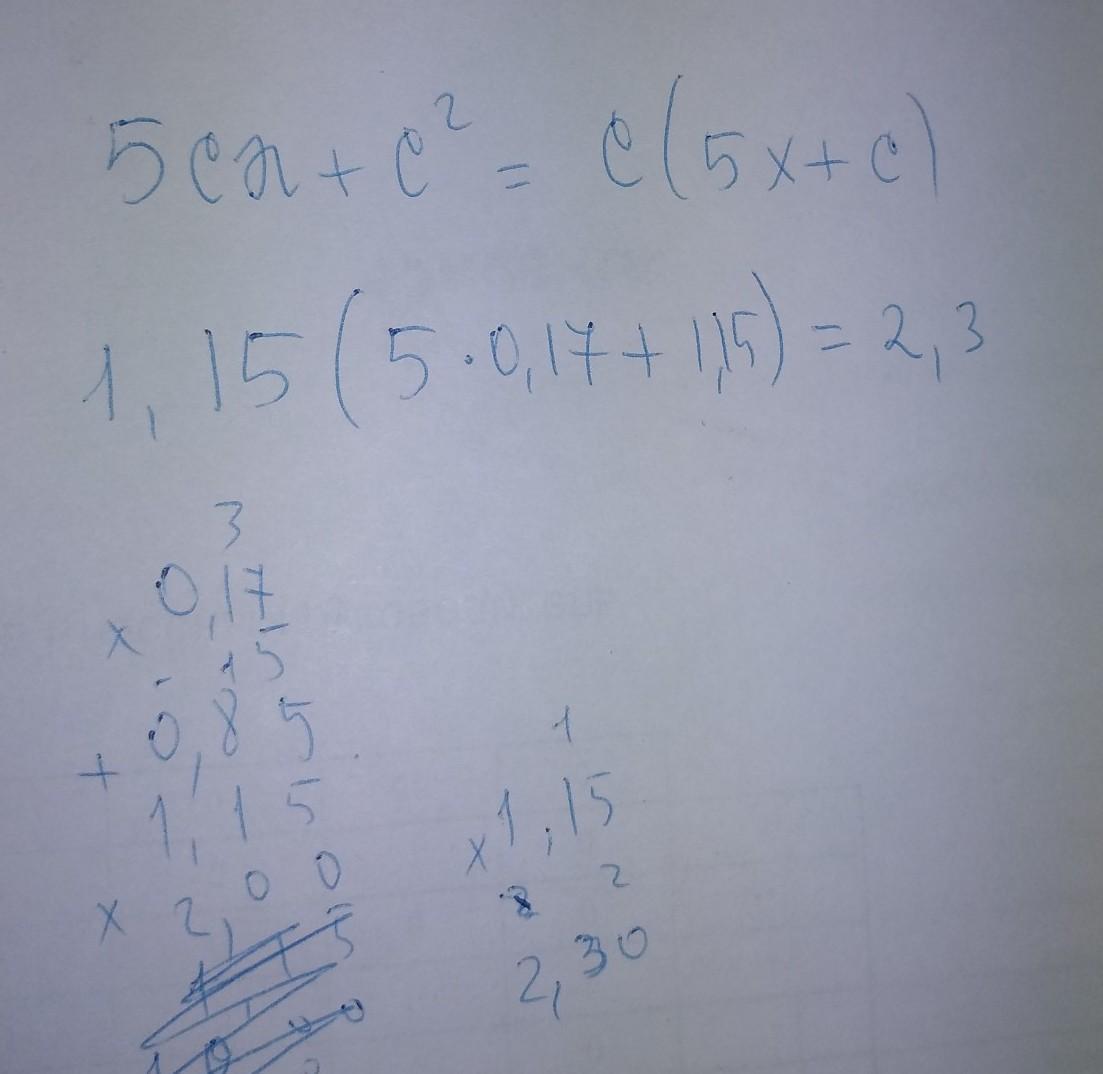 5cx + c² = c(5x + c)
1,15(5·0,17 + 1,15) = 2,3
3
0,17
× 5
0,85
+ 1,15
× 2,00
1
1,15
× 2
2,30